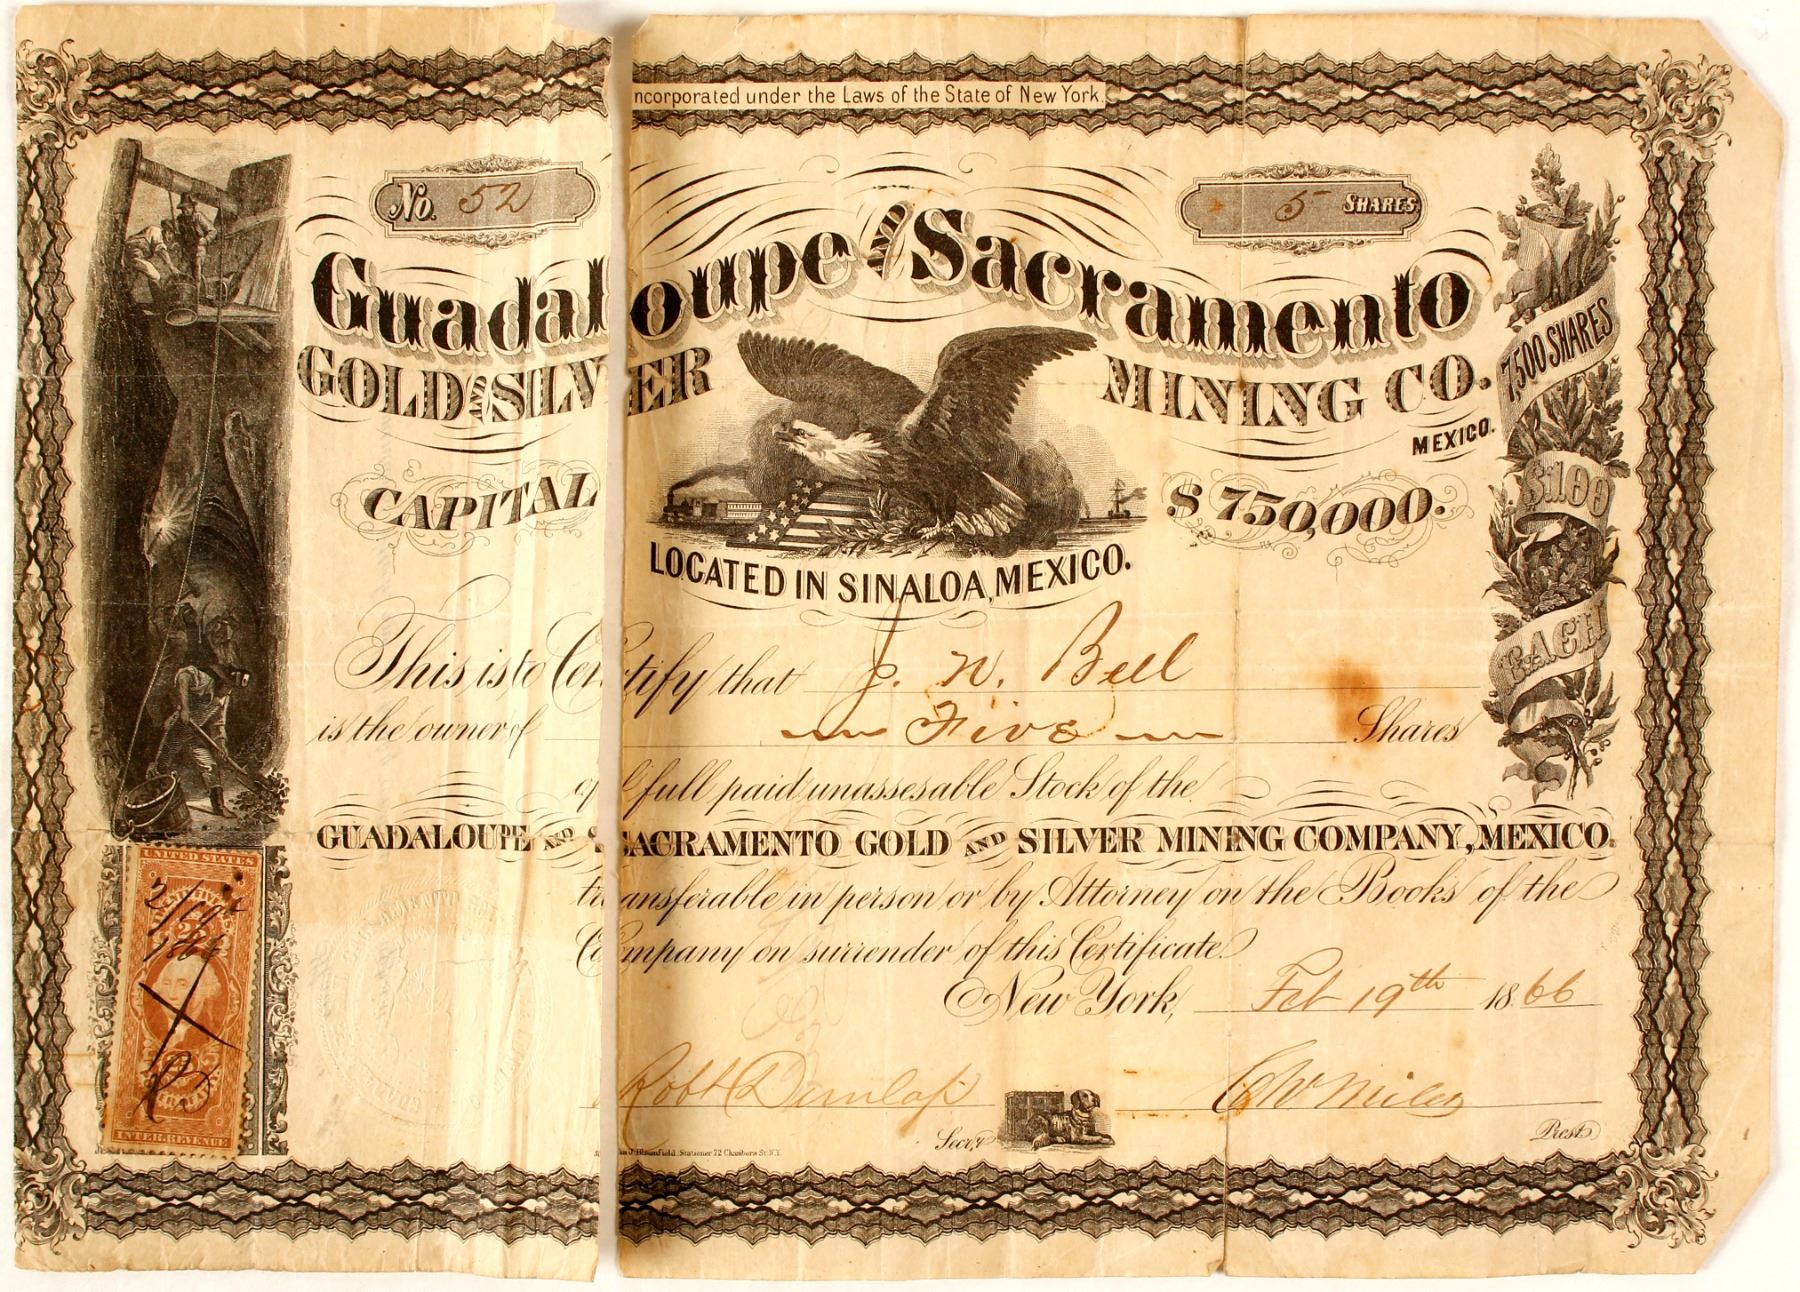 Incorporated under the Laws of the State of New York.
No. 52
5 SHARES
Guadaloupe AND Sacramento
GOLD AND SILVER MINING CO.
MEXICO.
7500 SHARES
$100
EACH
CAPITAL $750,000.
LOCATED IN SINALOA, MEXICO.
This is to Certify that J. W. Bell
is the owner of Five Shares
of full paid unassesable Stock of the
GUADALOUPE AND SACRAMENTO GOLD AND SILVER MINING COMPANY, MEXICO.
transferable in person or by Attorney on the Books of the
Company on surrender of this Certificate.
New York, Feb 19th 1866
Robt Dunlap
Secr,y
C W Miles
Prest
J. Bloomfield, Stationer 72 Chambers St. N.Y.
UNITED STATES
2/19
1866
25
INTER. REVENUE